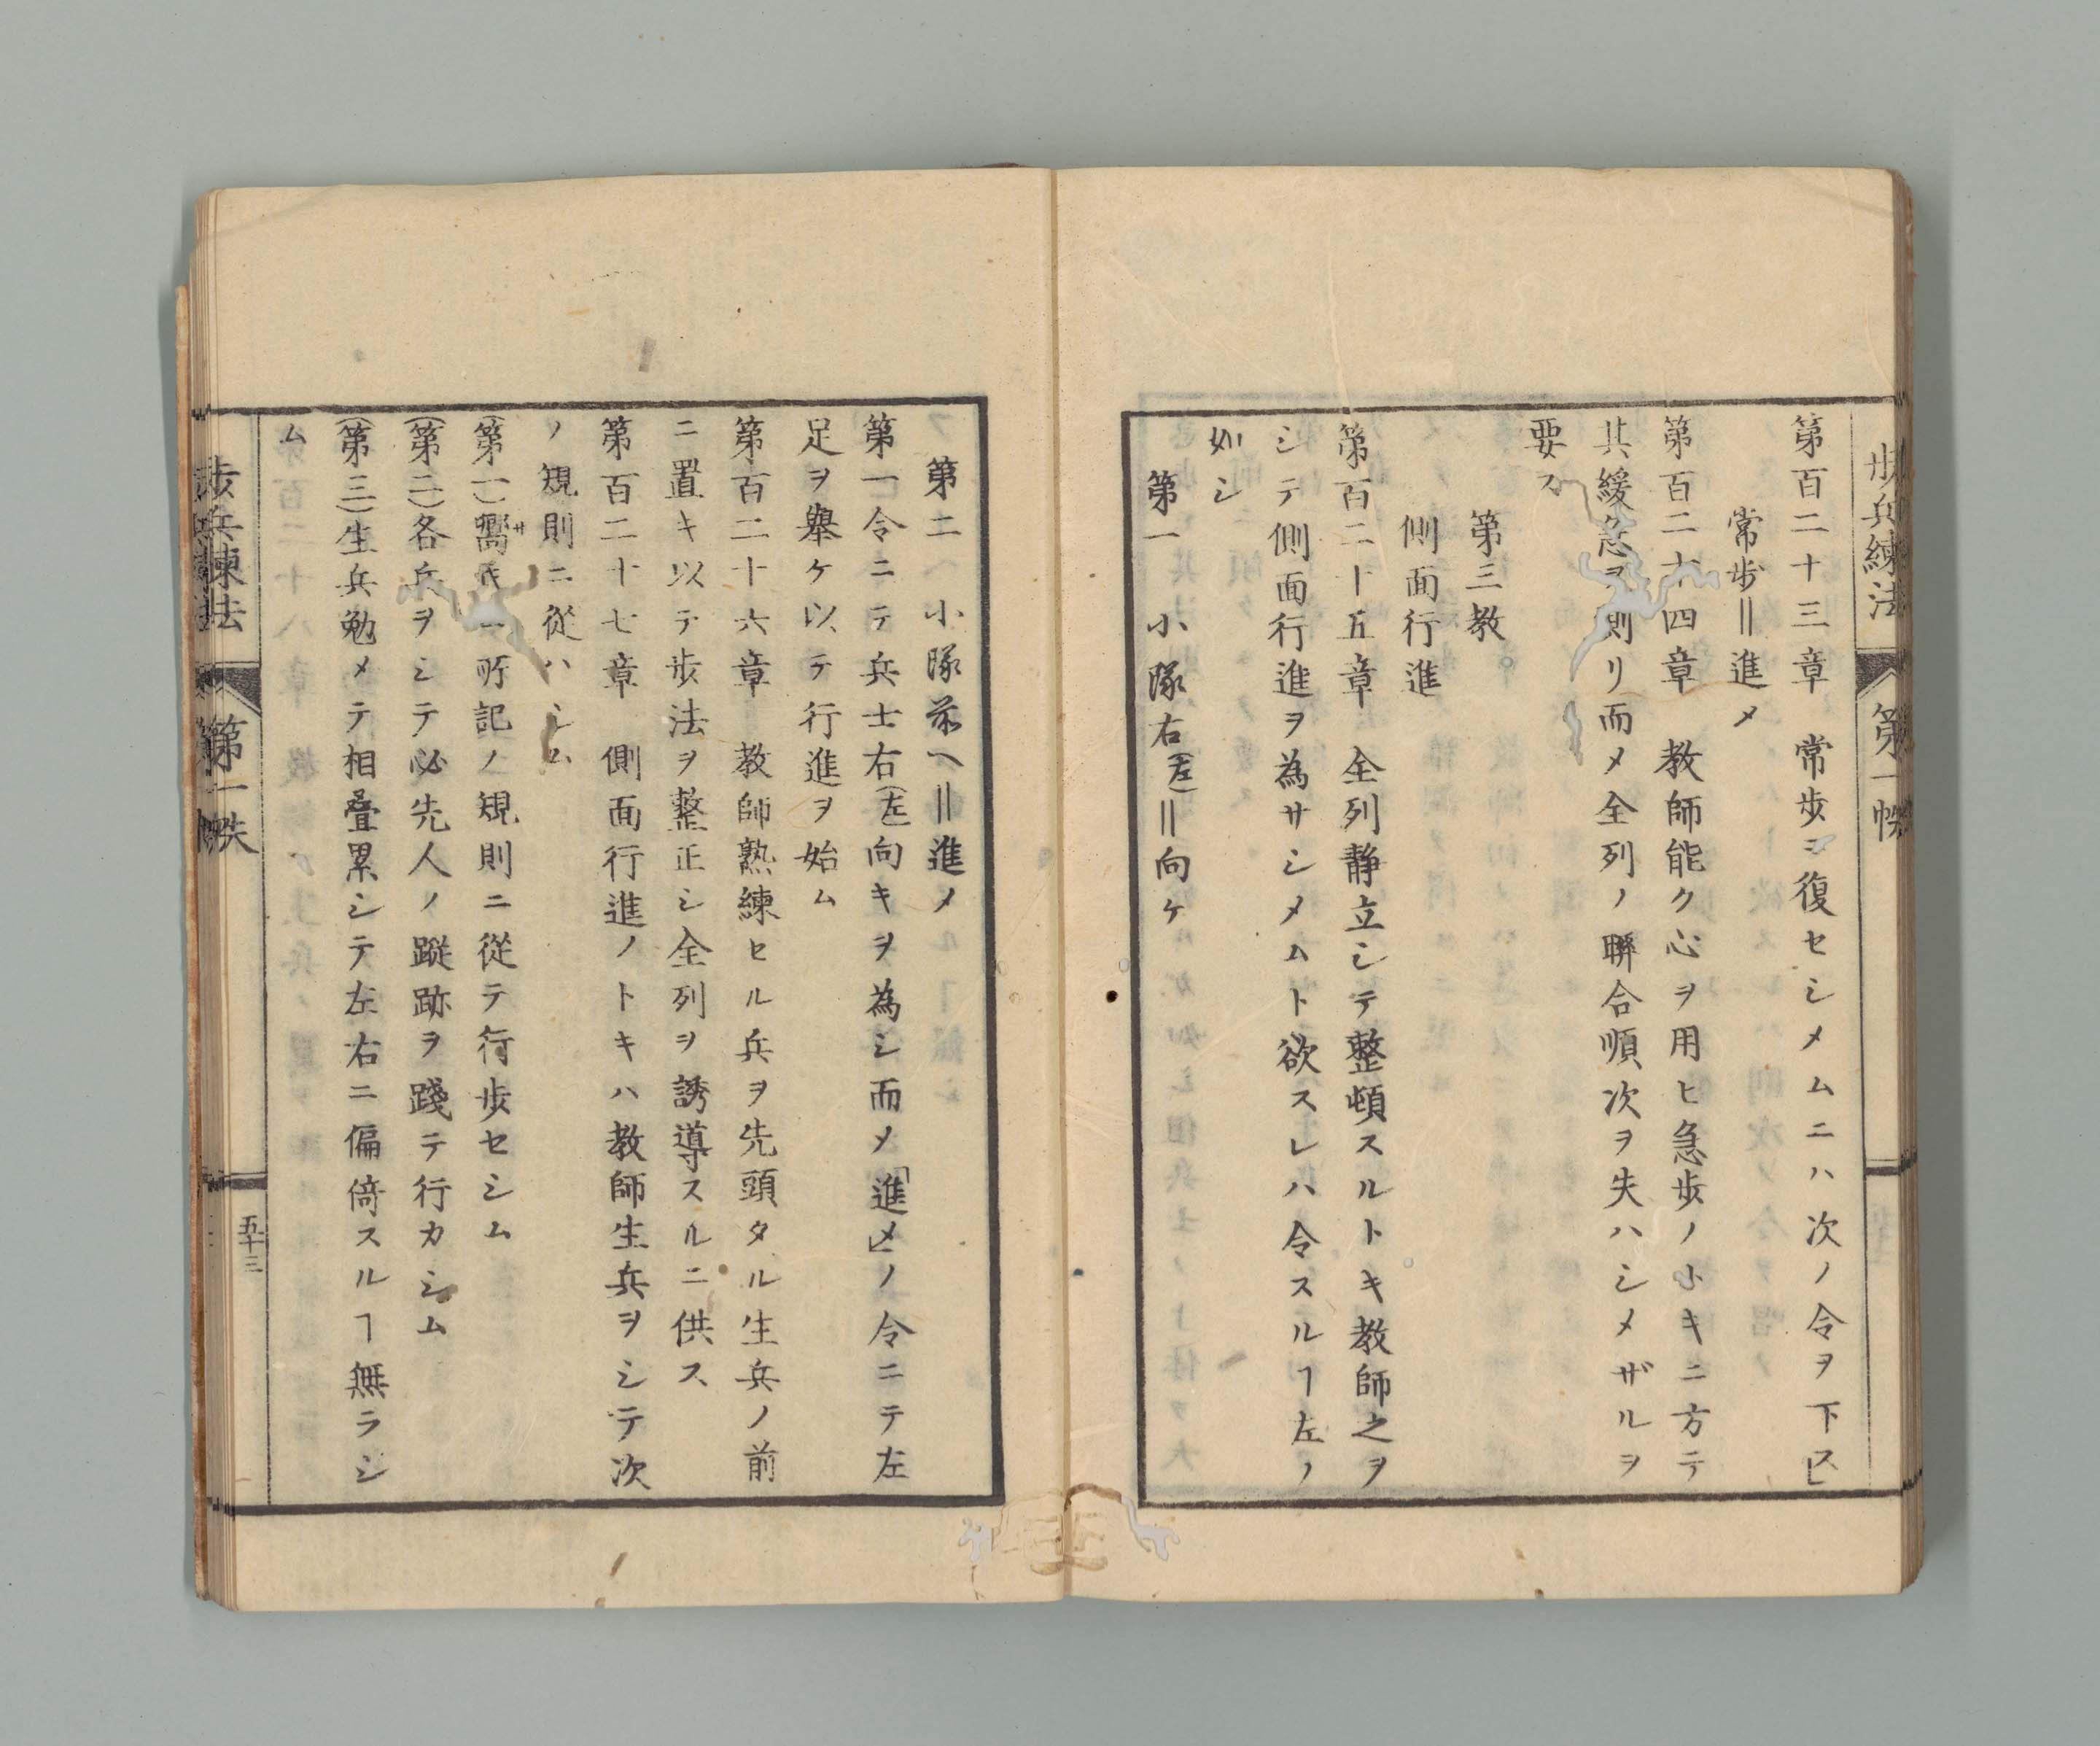 歩兵練法 第一帙
第百二十三章 常歩ニ復セシメムニハ次ノ令ヲ下ス
常歩‖進メ
第百二十四章 教師能ク心ヲ用ヒ急歩ノトキニ方テ
其緩急ヲ則リ而メ全列ノ聯合順次ヲ失ハシメザルヲ
要ス
第三教
側面行進
第百二十五章 全列静立シテ整頓スルトキ教師之ヲ
シテ側面行進ヲ為サシメムト欲スレハ令スルヿ左ノ
如シ
第一 小隊右(左)‖向ケ
第二 小隊前ヘ‖進メ
第一令ニテ兵士右(左)向キヲ為シ而メ「進メ」ノ令ニテ左
足ヲ舉ケ以テ行進ヲ始ム
第百二十六章 教師熟練セル兵ヲ先頭タル生兵ノ前
ニ置キ以テ歩法ヲ整正シ全列ヲ誘導スルニ供ス
第百二十七章 側面行進ノトキハ教師生兵ヲシテ次
ノ規則ニ從ハシム
(第一)嚮キニ所記ノ規則ニ從テ行歩セシム
(第二)各兵ヲシテ必先人ノ蹤跡ヲ踐テ行カシム
(第三)生兵勉メテ相疊累シテ左右ニ偏倚スルヿ無ラシ
ム
歩兵練法 第一帙 五十三